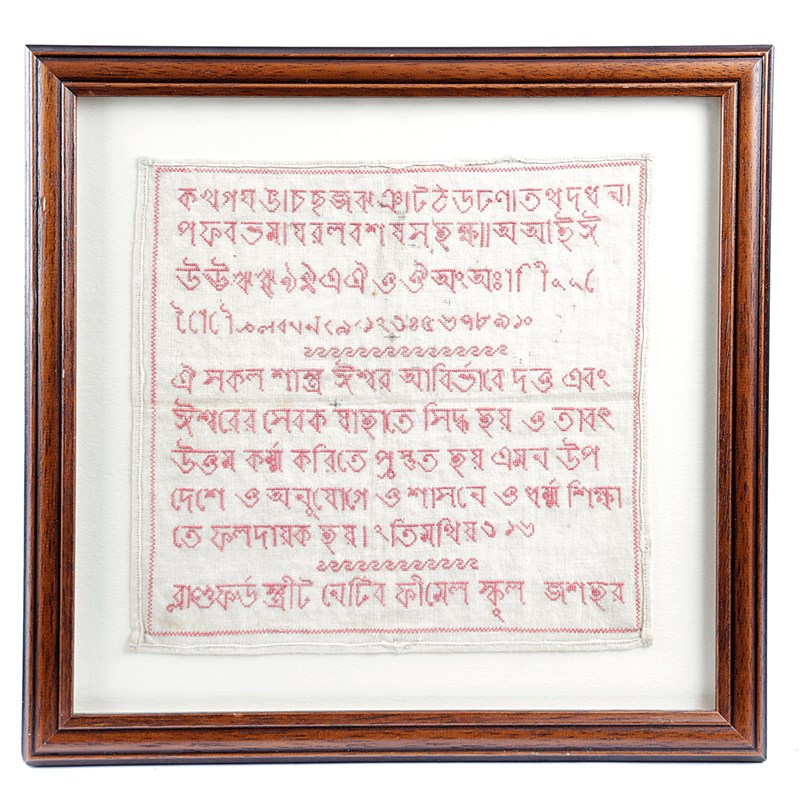 কখগঘঙ।চছজঝঞ।টঠডঢণ।তথদধন।
পফবভম।যরলবশষসহক্ষ॥অআইঈ
উঊঋৠঌৡএঐওঔঅংঅঃ।
১২৩৪৫৬৭৮৯১০
ঐ সকল শাস্ত্র ঈশ্বর আবির্ভাবে দত্ত এবং
ঈশ্বরের সেবক যাহাতে সিদ্ধ হয় ও তাবৎ
উত্তম কর্ম্ম করিতে প্রস্তুত হয় এমন উপ
দেশে ও অনুযোগে ও শাসনে ও ধর্ম্ম শিক্ষা
তে ফলদায়ক হয়। ২তিমথিয় ৩ ১৬
ব্লাণ্ডফর্ড স্ত্রীট নেটিব ফীমেল স্কুল জশহর